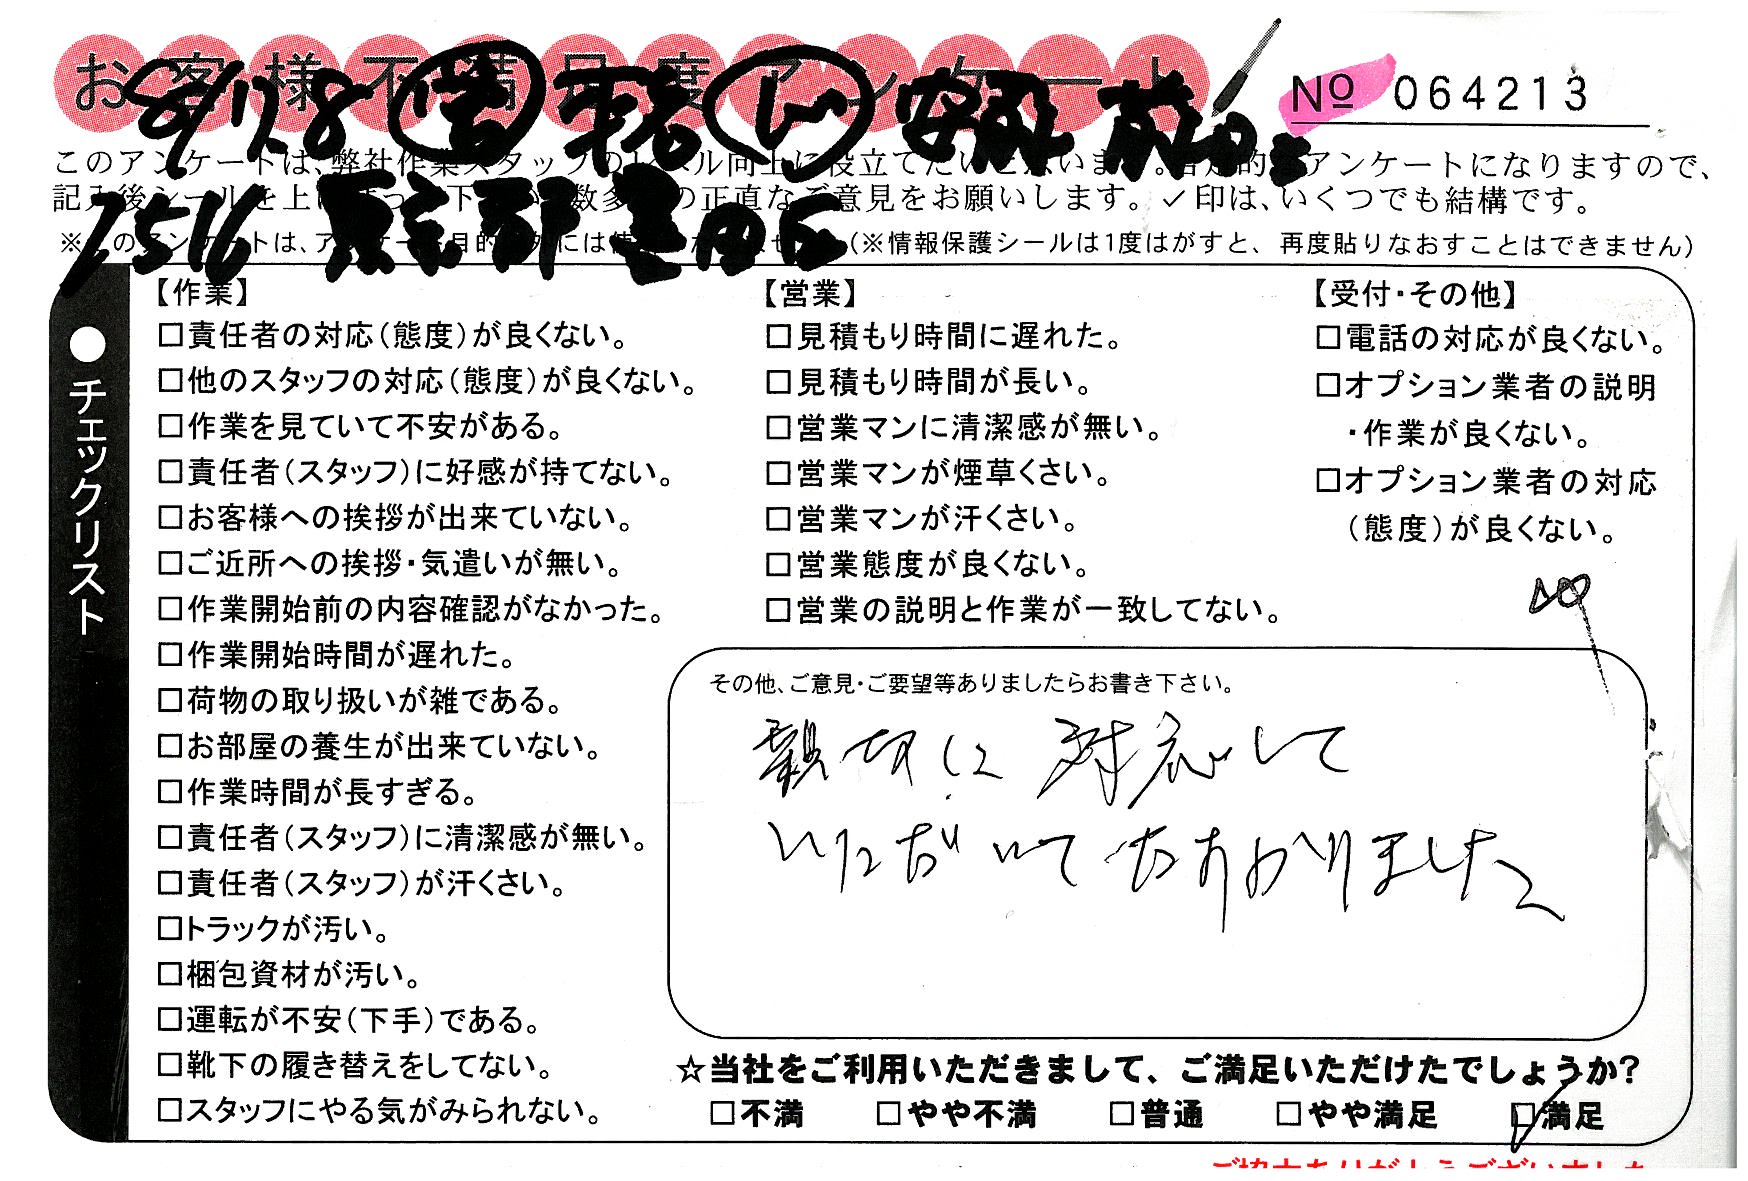 お客様不満足度アンケート
№ 064213
8/17.8
このアンケートは、弊社作業スタッフのレベル向上に役立てたいと思います。 アンケートになりますので、
記入後シールを上に 下 数多 の正直なご意見をお願いします。✓印は、いくつでも結構です。
7516 東京都墨田区
(※情報保護シールは1度はがすと、再度貼りなおすことはできません)
●チェックリスト
【作業】
□責任者の対応(態度)が良くない。
□他のスタッフの対応(態度)が良くない。
□作業を見ていて不安がある。
□責任者(スタッフ)に好感が持てない。
□お客様への挨拶が出来ていない。
□ご近所への挨拶・気遣いが無い。
□作業開始前の内容確認がなかった。
□作業開始時間が遅れた。
□荷物の取り扱いが雑である。
□お部屋の養生が出来ていない。
□作業時間が長すぎる。
□責任者(スタッフ)に清潔感が無い。
□責任者(スタッフ)が汗くさい。
□トラックが汚い。
□梱包資材が汚い。
□運転が不安(下手)である。
□靴下の履き替えをしてない。
□スタッフにやる気がみられない。
【営業】
□見積もり時間に遅れた。
□見積もり時間が長い。
□営業マンに清潔感が無い。
□営業マンが煙草くさい。
□営業マンが汗くさい。
□営業態度が良くない。
□営業の説明と作業が一致してない。
【受付・その他】
□電話の対応が良くない。
□オプション業者の説明
・作業が良くない。
□オプション業者の対応
(態度)が良くない。
その他、ご意見・ご要望等ありましたらお書き下さい。
親切に対応して
いただいてたすかりました
☆当社をご利用いただきまして、ご満足いただけたでしょうか?
□不満 □やや不満 □普通 □やや満足 ☑満足
ご協力ありがとうございました